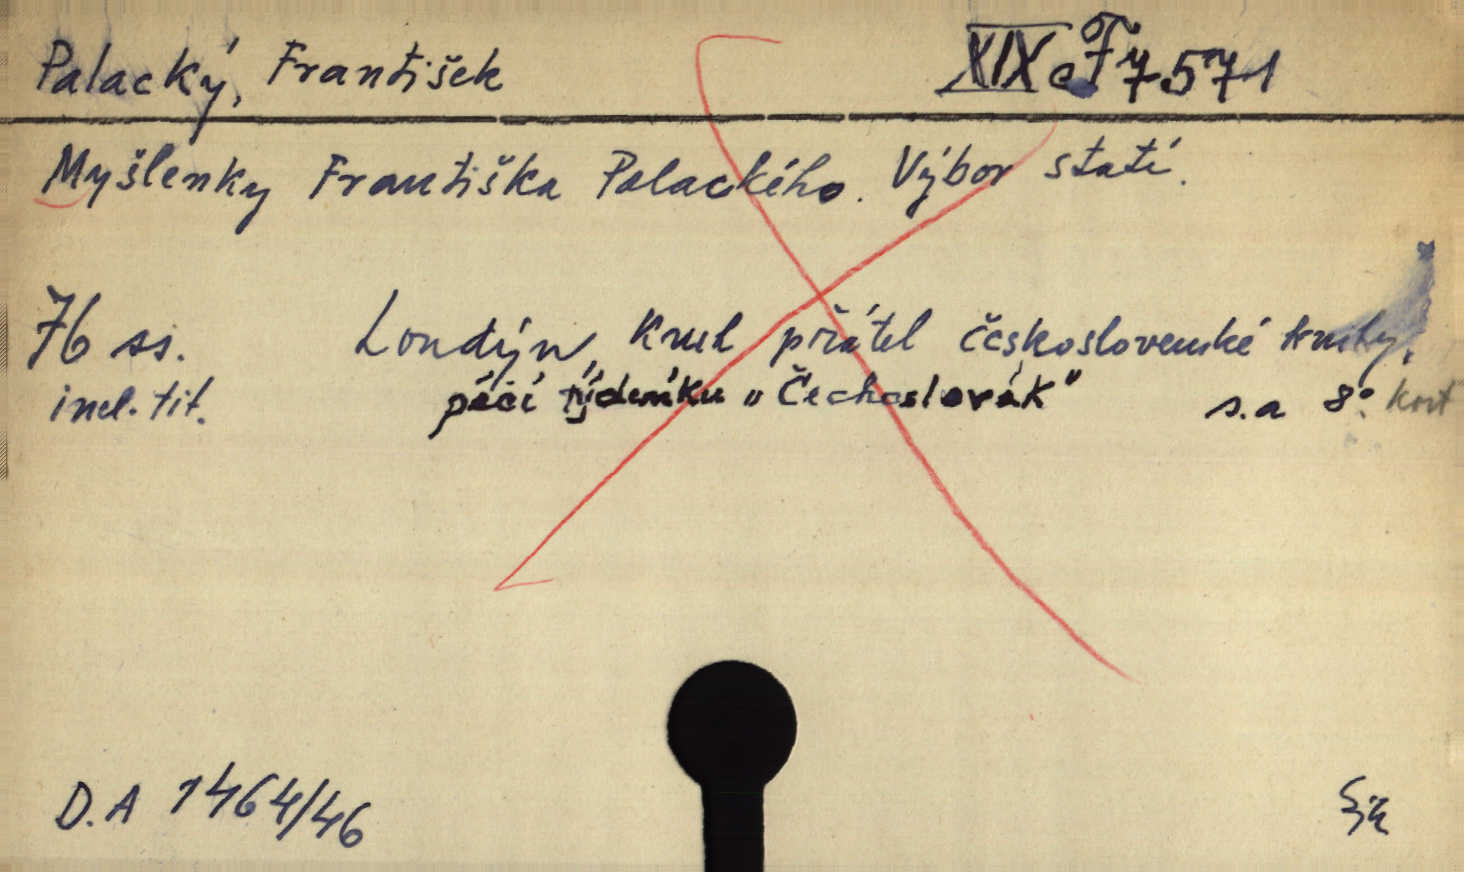 Palacký, František XIX c F 7571
Myšlenky Františka Palackého. Výbor statí.
76 ss. Londýn, Kruh přátel československé knihy,
incl. tit. péčí týdeníku „Čechoslovák" s.a 8°. kart
D.A 1464/46